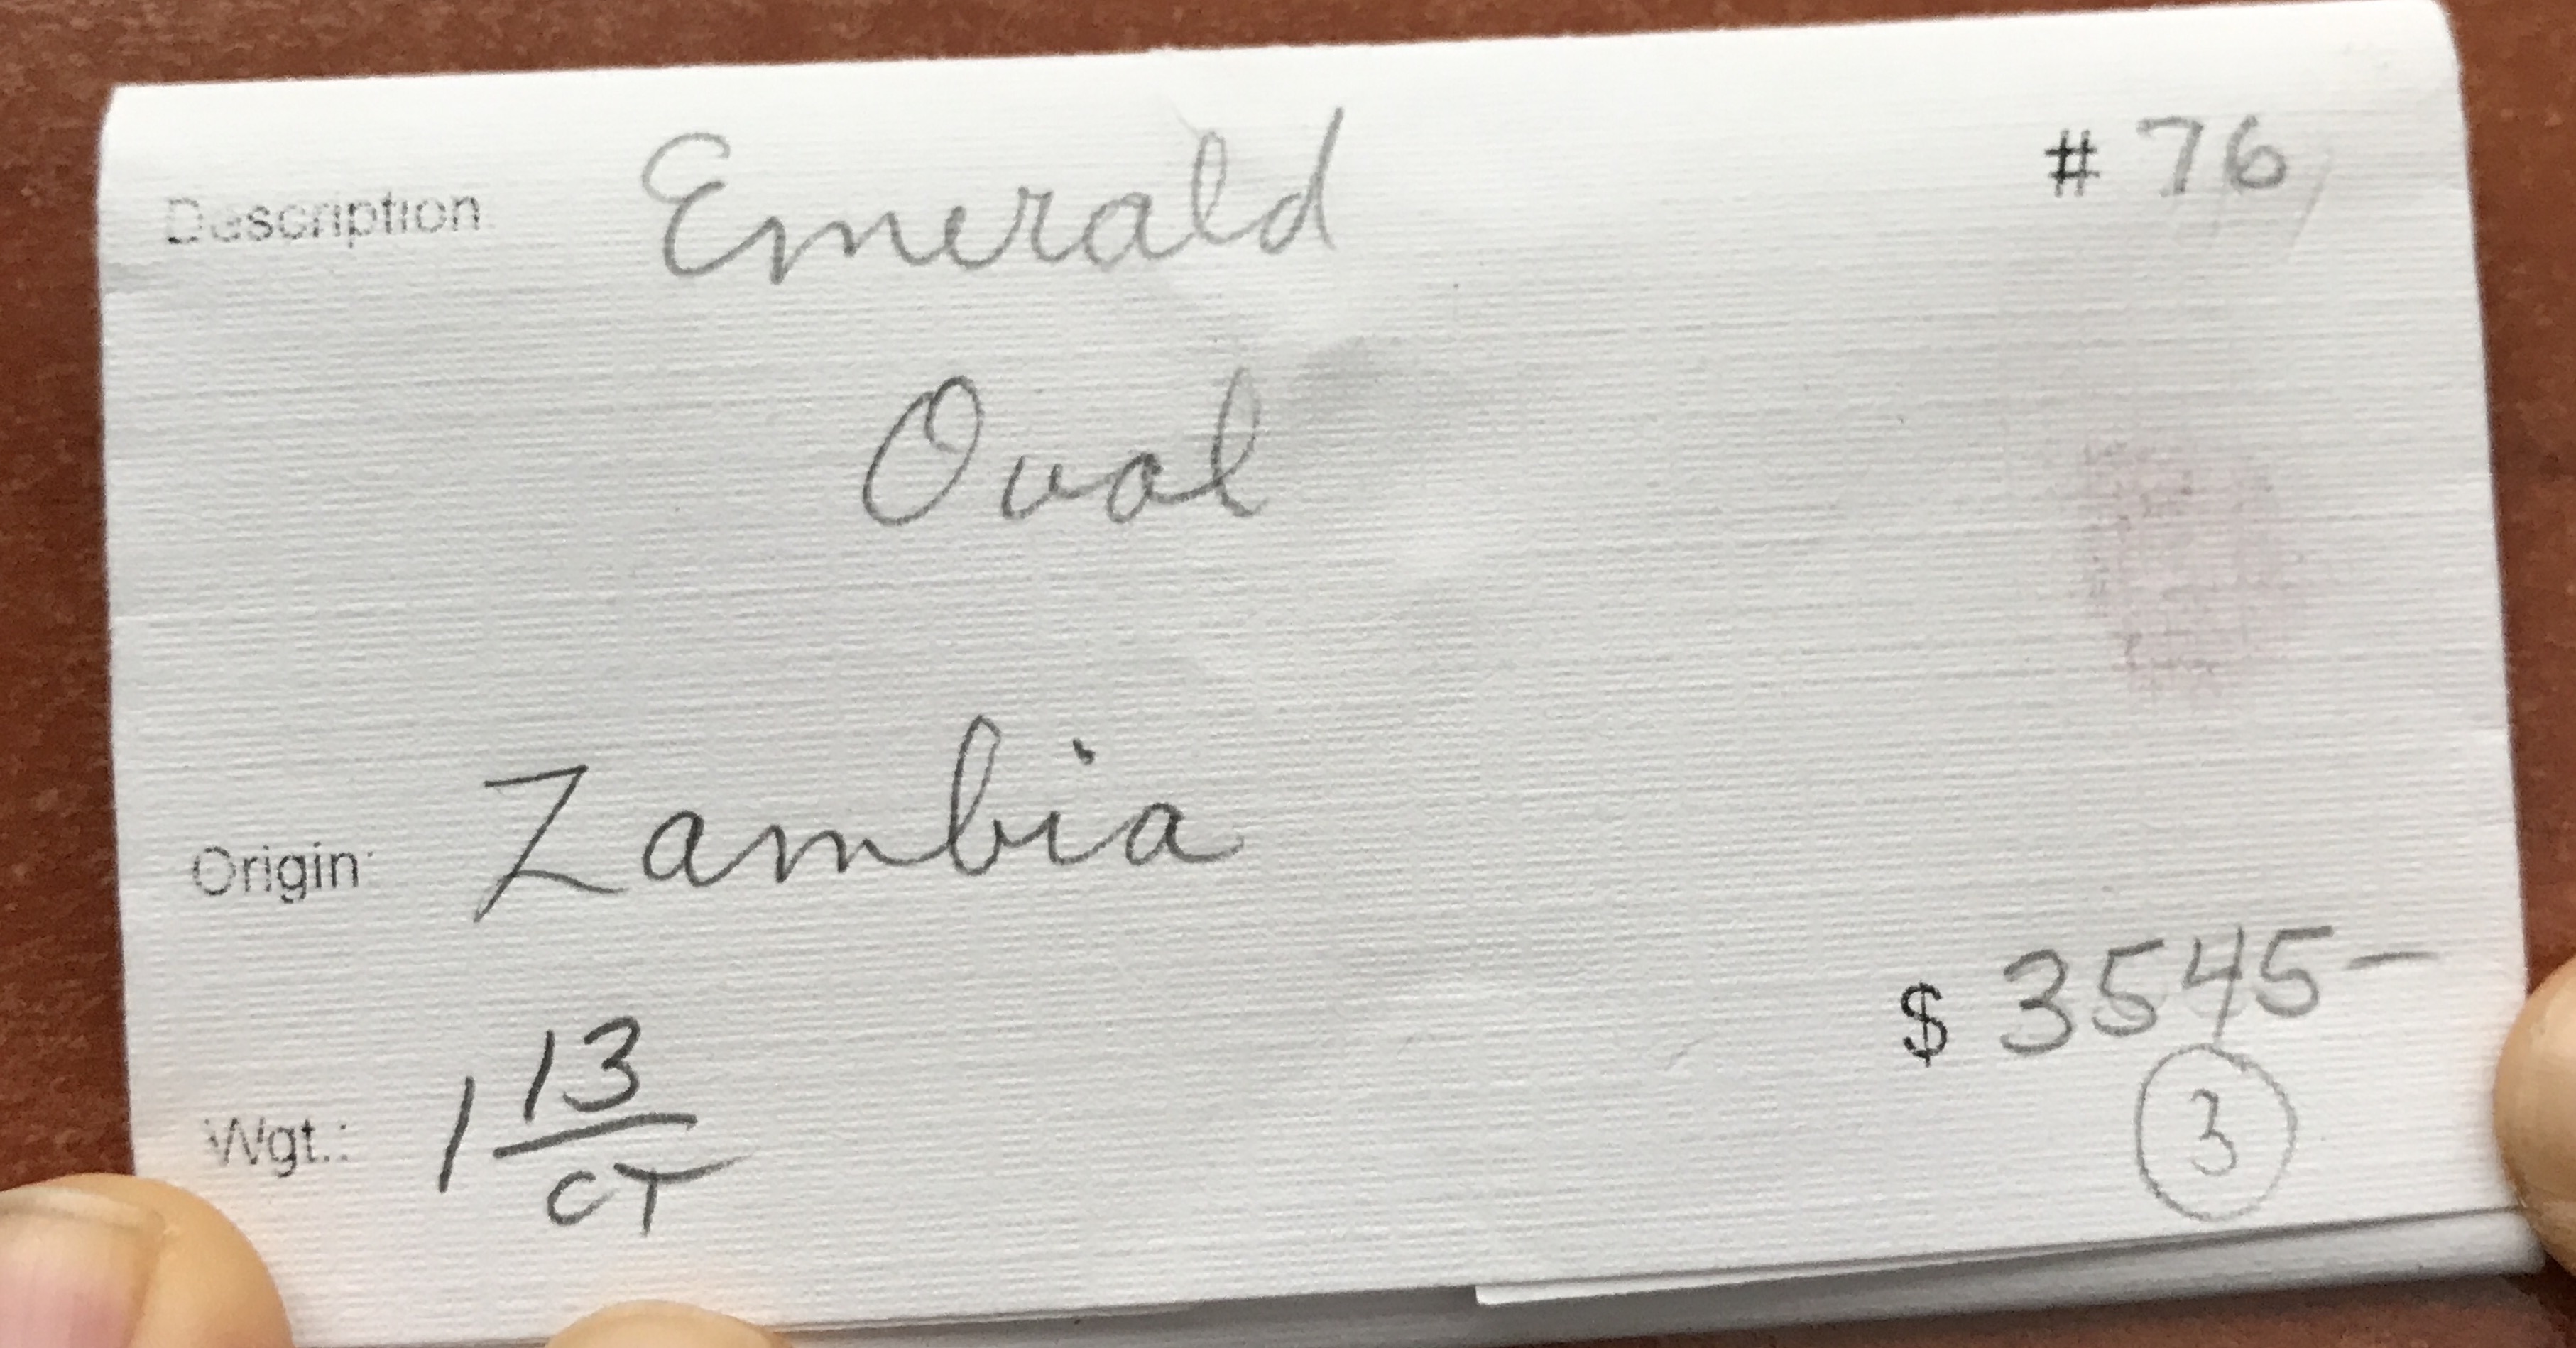 Description: Emerald # 76
Oval
Origin: Zambia
$ 3545-
Wgt.: 1 13/CT
3